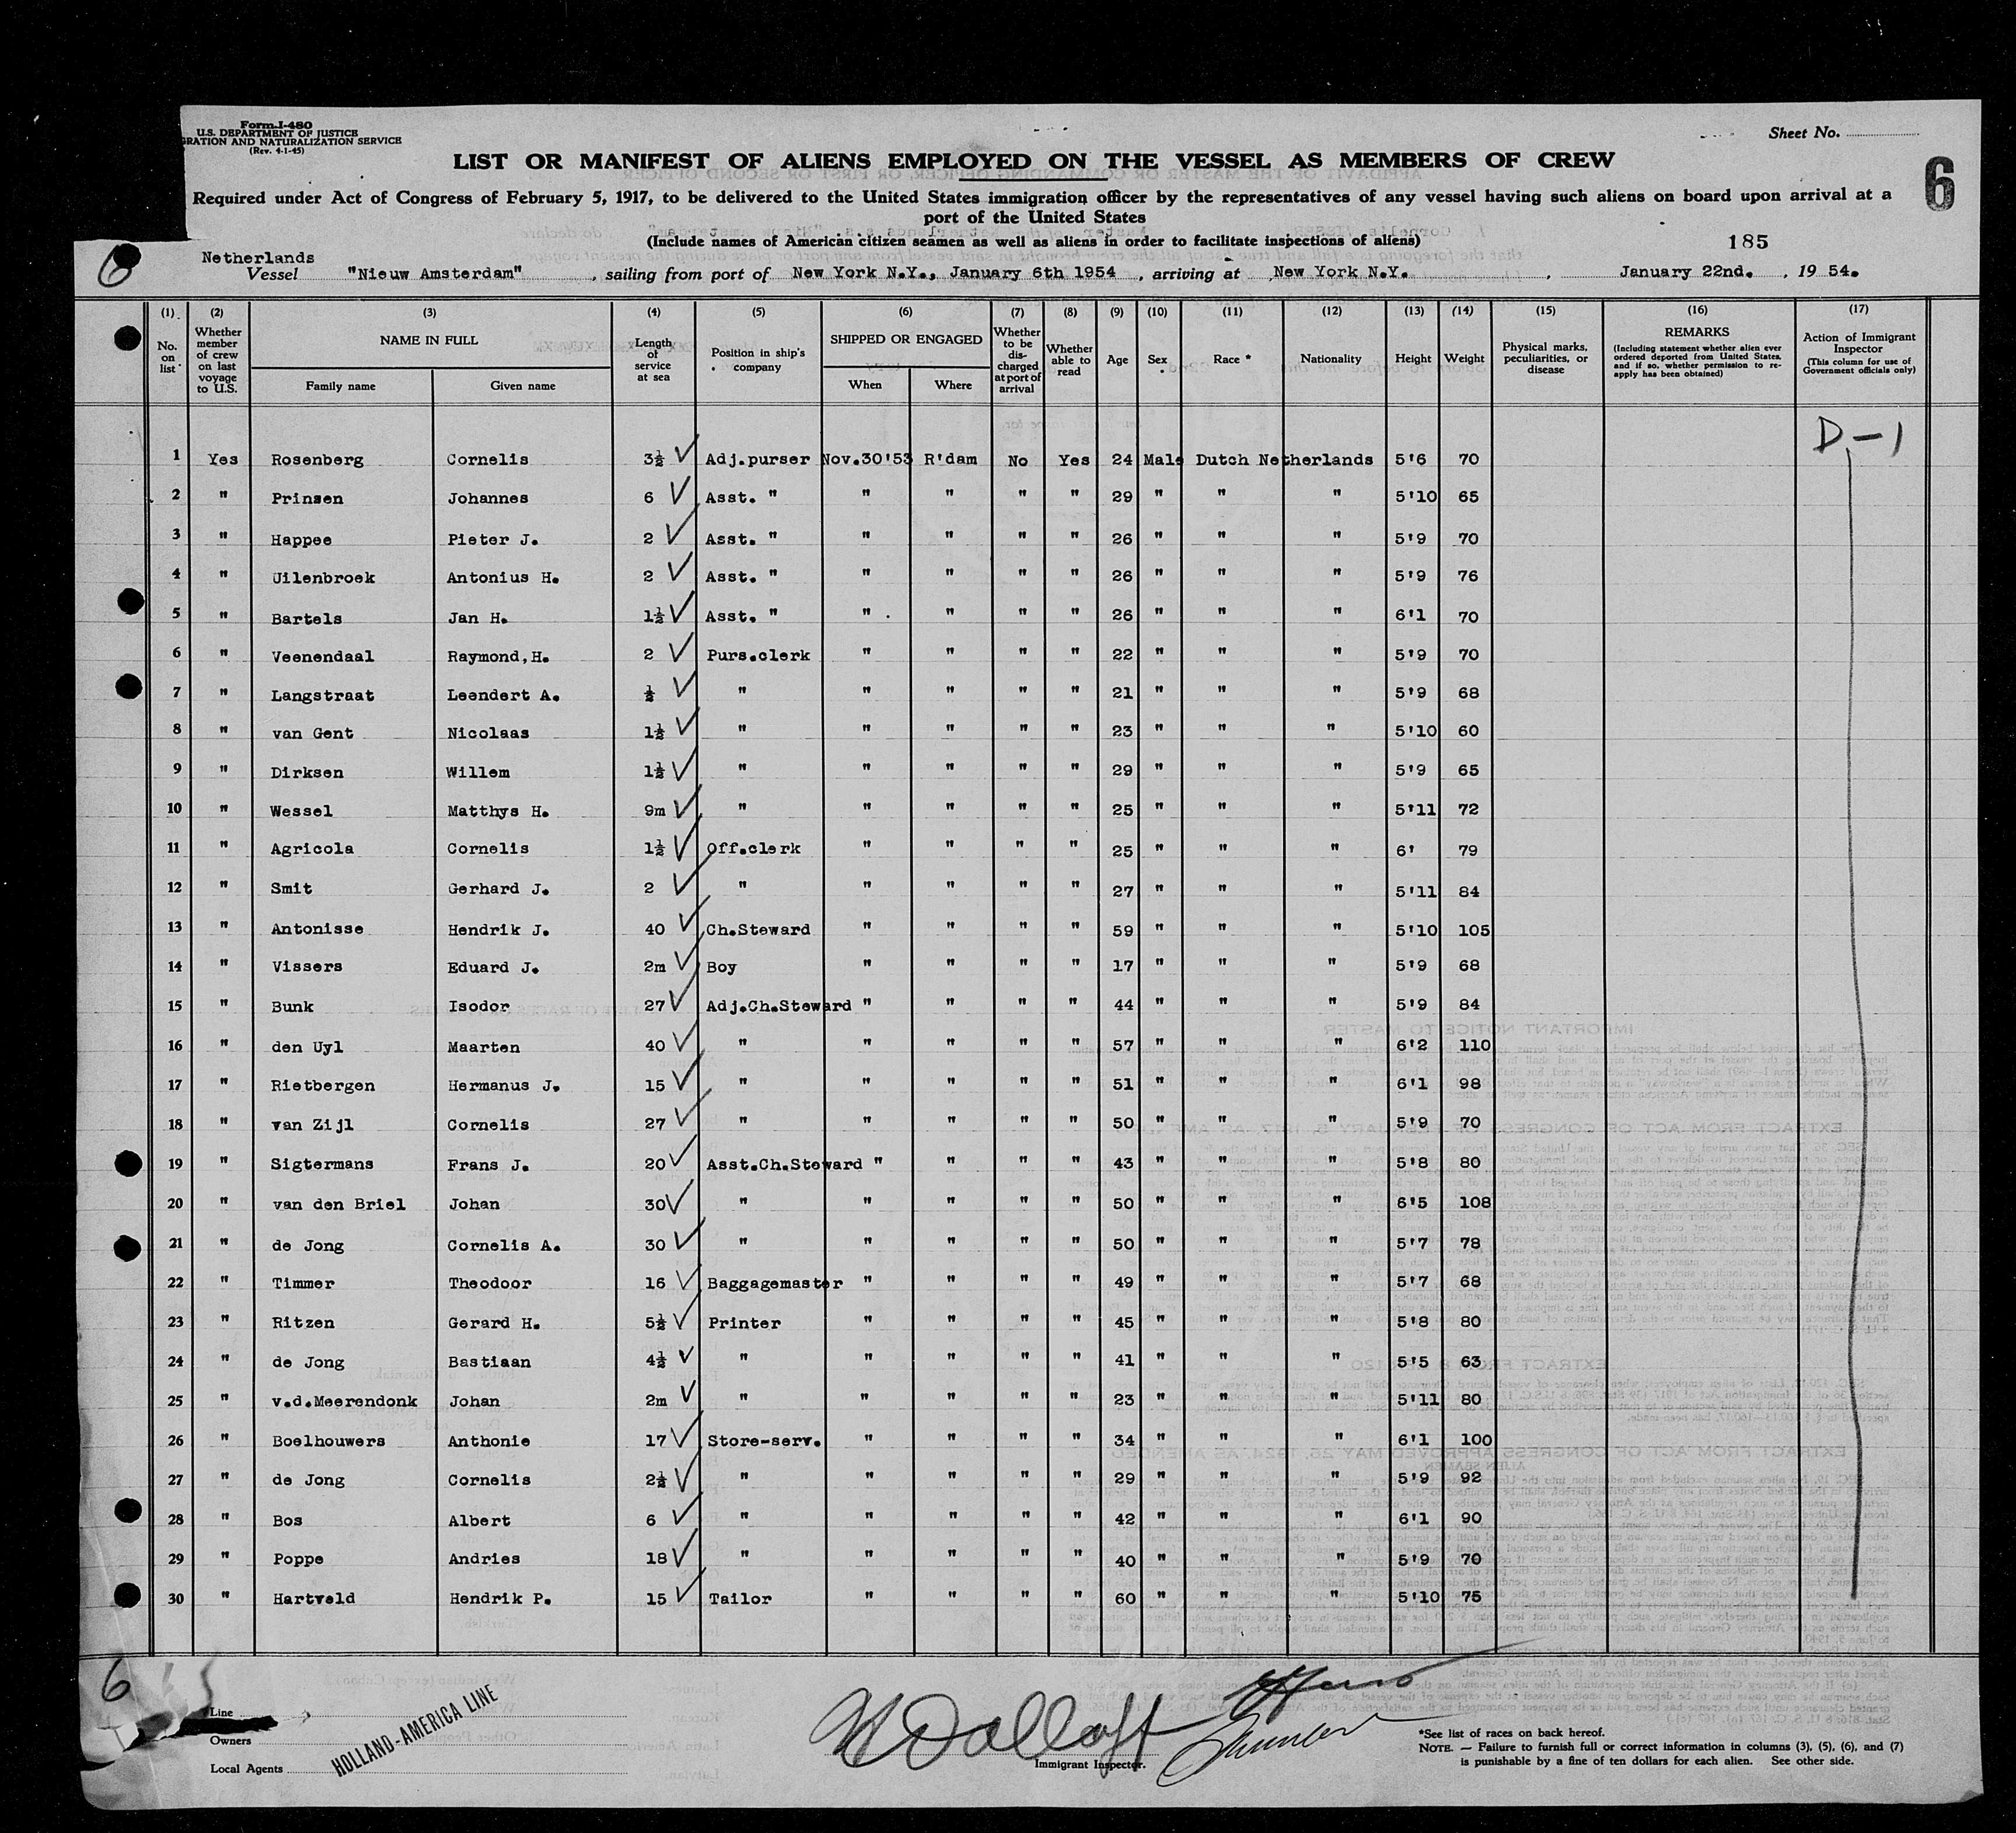 Form I-480
U.S. DEPARTMENT OF JUSTICE
GRATION AND NATURALIZATION SERVICE
(Rev. 4-1-45)
Sheet No.
LIST OR MANIFEST OF ALIENS EMPLOYED ON THE VESSEL AS MEMBERS OF CREW
6
Required under Act of Congress of February 5, 1917, to be delivered to the United States immigration officer by the representatives of any vessel having such aliens on board upon arrival at a
port of the United States
(Include names of American citizen seamen as well as aliens in order to facilitate inspections of aliens)
185
6
Netherlands
Vessel "Nieuw Amsterdam", sailing from port of New York N.Y., January 6th 1954, arriving at New York N.Y., January 22nd., 19 54.
(1) (2) (3) (4) (5) (6) (7) (8) (9) (10) (11) (12) (13) (14) (15) (16) (17)
No. on list
Whether member of crew on last voyage to U.S.
NAME IN FULL
Family name Given name
Length of service at sea
Position in ship's company
SHIPPED OR ENGAGED
When Where
Whether to be discharged at port of arrival
Whether able to read
Age Sex Race * Nationality Height Weight
Physical marks, peculiarities, or disease
REMARKS
(Including statement whether alien ever ordered deported from United States, and if so, whether permission to reapply has been obtained)
Action of Immigrant Inspector
(This column for use of Government officials only)
D-1
1 Yes Rosenberg Cornelis 3½ Adj.purser Nov.30'53 R'dam No Yes 24 Male Dutch Netherlands 5'6 70
2 " Prinsen Johannes 6 Asst. " " " " " 29 " " " 5'10 65
3 " Happee Pieter J. 2 Asst. " " " " " 26 " " " 5'9 70
4 " Uilenbroek Antonius H. 2 Asst. " " " " " 26 " " " 5'9 76
5 " Bartels Jan H. 1½ Asst. " " " " " 26 " " " 6'1 70
6 " Veenendaal Raymond,H. 2 Purs.clerk " " " " 22 " " " 5'9 70
7 " Langstraat Leendert A. ½ " " " " " 21 " " " 5'9 68
8 " van Gent Nicolaas 1½ " " " " " 23 " " " 5'10 60
9 " Dirksen Willem 1½ " " " " " 29 " " " 5'9 65
10 " Wessel Matthys H. 9m " " " " " 25 " " " 5'11 72
11 " Agricola Cornelis 1½ Off.clerk " " " " 25 " " " 6' 79
12 " Smit Gerhard J. 2 " " " " " 27 " " " 5'11 84
13 " Antonisse Hendrik J. 40 Ch.Steward " " " " 59 " " " 5'10 105
14 " Vissers Eduard J. 2m Boy " " " " 17 " " " 5'9 68
15 " Bunk Isodor 27 Adj.Ch.Steward " " " " 44 " " " 5'9 84
16 " den Uyl Maarten 40 " " " " " 57 " " " 6'2 110
17 " Rietbergen Hermanus J. 15 " " " " " 51 " " " 6'1 98
18 " van Zijl Cornelis 27 " " " " " 50 " " " 5'9 70
19 " Sigtermans Frans J. 20 Asst.Ch.Steward " " " " 43 " " " 5'8 80
20 " van den Briel Johan 30 " " " " " 50 " " " 6'5 108
21 " de Jong Cornelis A. 30 " " " " " 50 " " " 5'7 78
22 " Timmer Theodoor 16 Baggagemaster " " " " 49 " " " 5'7 68
23 " Ritzen Gerard H. 5½ Printer " " " " 45 " " " 5'8 80
24 " de Jong Bastiaan 4½ " " " " " 41 " " " 5'5 63
25 " v.d.Meerendonk Johan 2m " " " " " 23 " " " 5'11 80
26 " Boelhouwers Anthonie 17 Store-serv. " " " " 34 " " " 6'1 100
27 " de Jong Cornelis 2½ " " " " " 29 " " " 5'9 92
28 " Bos Albert 6 " " " " " 42 " " " 6'1 90
29 " Poppe Andries 18 " " " " " 40 " " " 5'9 70
30 " Hartveld Hendrik P. 15 Tailor " " " " 60 " " " 5'10 75
6
Line
Owners
Local Agents
HOLLAND-AMERICA LINE
Immigrant Inspector.
*See list of races on back hereof.
NOTE. — Failure to furnish full or correct information in columns (3), (5), (6), and (7)
is punishable by a fine of ten dollars for each alien. See other side.